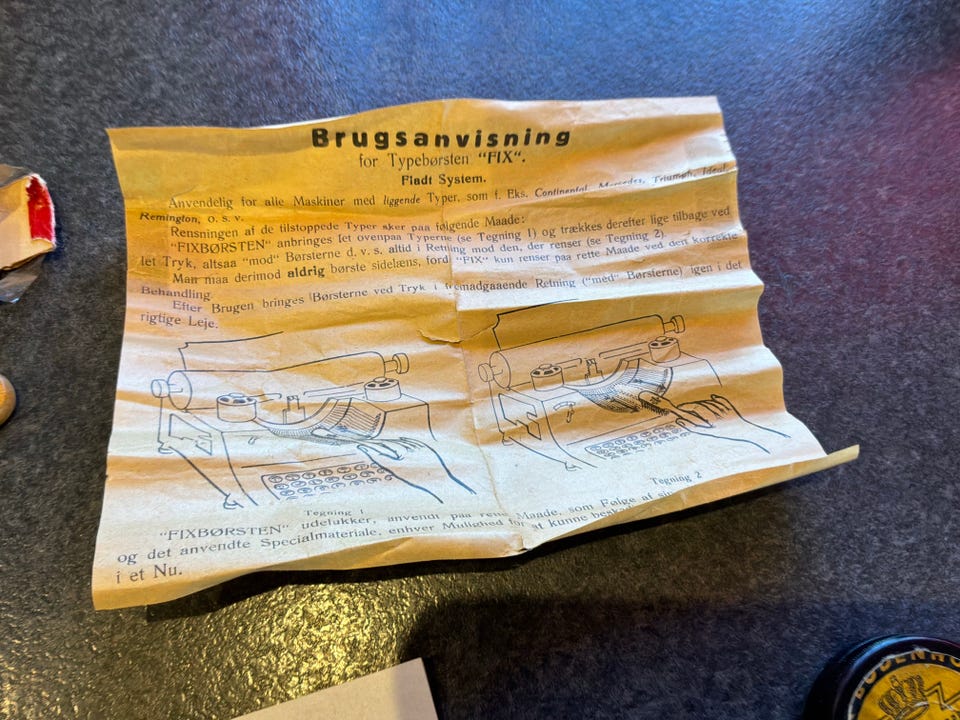 Brugsanvisning
for Typebørsten "FIX".
Fladt System.
Anvendelig for alle Maskiner med liggende Typer, som f. Eks. Continental, Mercedes, Triumph, Ideal,
Remington, o. s. v.
Rensningen af de tilstoppede Typer sker paa følgende Maade:
"FIXBØRSTEN" anbringes let ovenpaa Typerne (se Tegning 1) og trækkes derefter lige tilbage ved
let Tryk, altsaa "mod" Børsterne d. v. s. altid i Retning mod den, der renser (se Tegning 2).
Man maa derimod aldrig børste sidelæns, fordi "FIX" kun renser paa rette Maade ved den korrekte
Behandling.
Efter Brugen bringes Børsterne ved Tryk i fremadgaaende Retning ("med" Børsterne) igen i det
rigtige Leje.
Tegning 1
Tegning 2
"FIXBØRSTEN" udelukker, anvendt paa rette Maade, som Følge af
og det anvendte Specialmateriale, enhver Mulighed for at kunne
i et Nu.